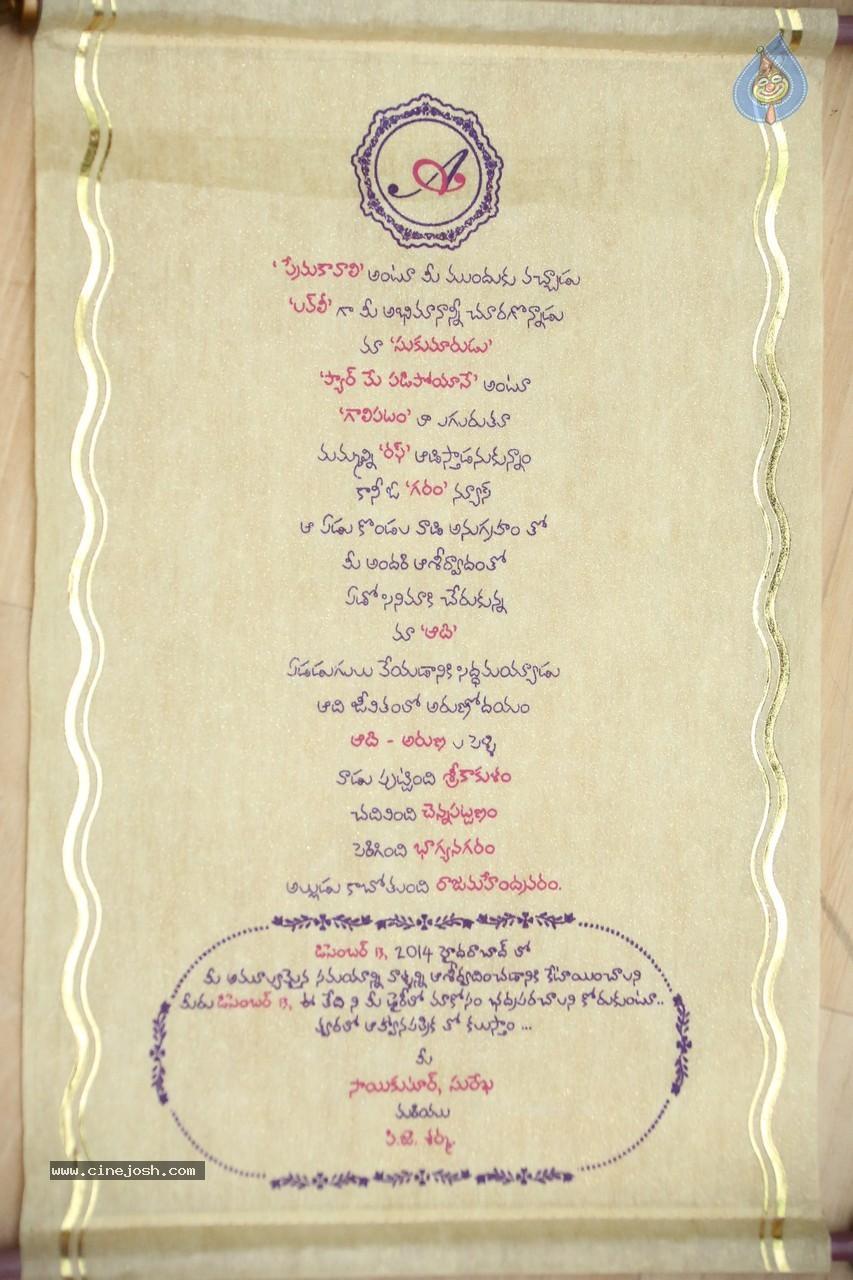 A
'ప్రేమకావాలి' అంటూ మీ ముందుకు వచ్చాడు
'లవ్‌లీ' గా మీ అభిమానాన్నీ చూరగొన్నాడు
మా 'సుకుమారుడు'
'ప్యార్ మే పడిపోయానే' అంటూ
'గాలిపటం' లా ఎగురుతూ
మమ్మల్ని 'రఫ్' ఆడిస్తాడనుకున్నాం
కానీ ఓ 'గరం' న్యూస్
ఆ ఏడు కొండలు వాడి అనుగ్రహం తో
మీ అందరి ఆశీర్వాదంతో
ఏడో సినిమాకి చేరుకున్న
మా 'ఆది'
ఏడడుగులు వేయడానికి సిద్ధమయ్యాడు
ఆది జీవితంలో అరుణోదయం
ఆది - అరుణ ల పెళ్ళి
వాడు పుట్టింది శ్రీకాకుళం
చదివింది చెన్నపట్టణం
పెరిగింది భాగ్యనగరం
అల్లుడు కాబోతుంది రాజమహేంద్రవరం.
డిసెంబర్ 13, 2014 హైదరాబాద్ లో
మీ అమూల్యమైన సమయాన్ని వాళ్ళన్ని ఆశీర్వదించడానికి కేటాయించాలని
మీరు డిసెంబర్ 13, ఈ తేది ని మీ డైరీలో మాకోసం భద్రపరచాలని కోరుకుంటూ..
త్వరలో ఆహ్వానపత్రిక తో కలుస్తాం ...
మీ
సాయికుమార్, సురేఖ
మరియు
పి.జె. శర్మ.
www.cinejosh.com